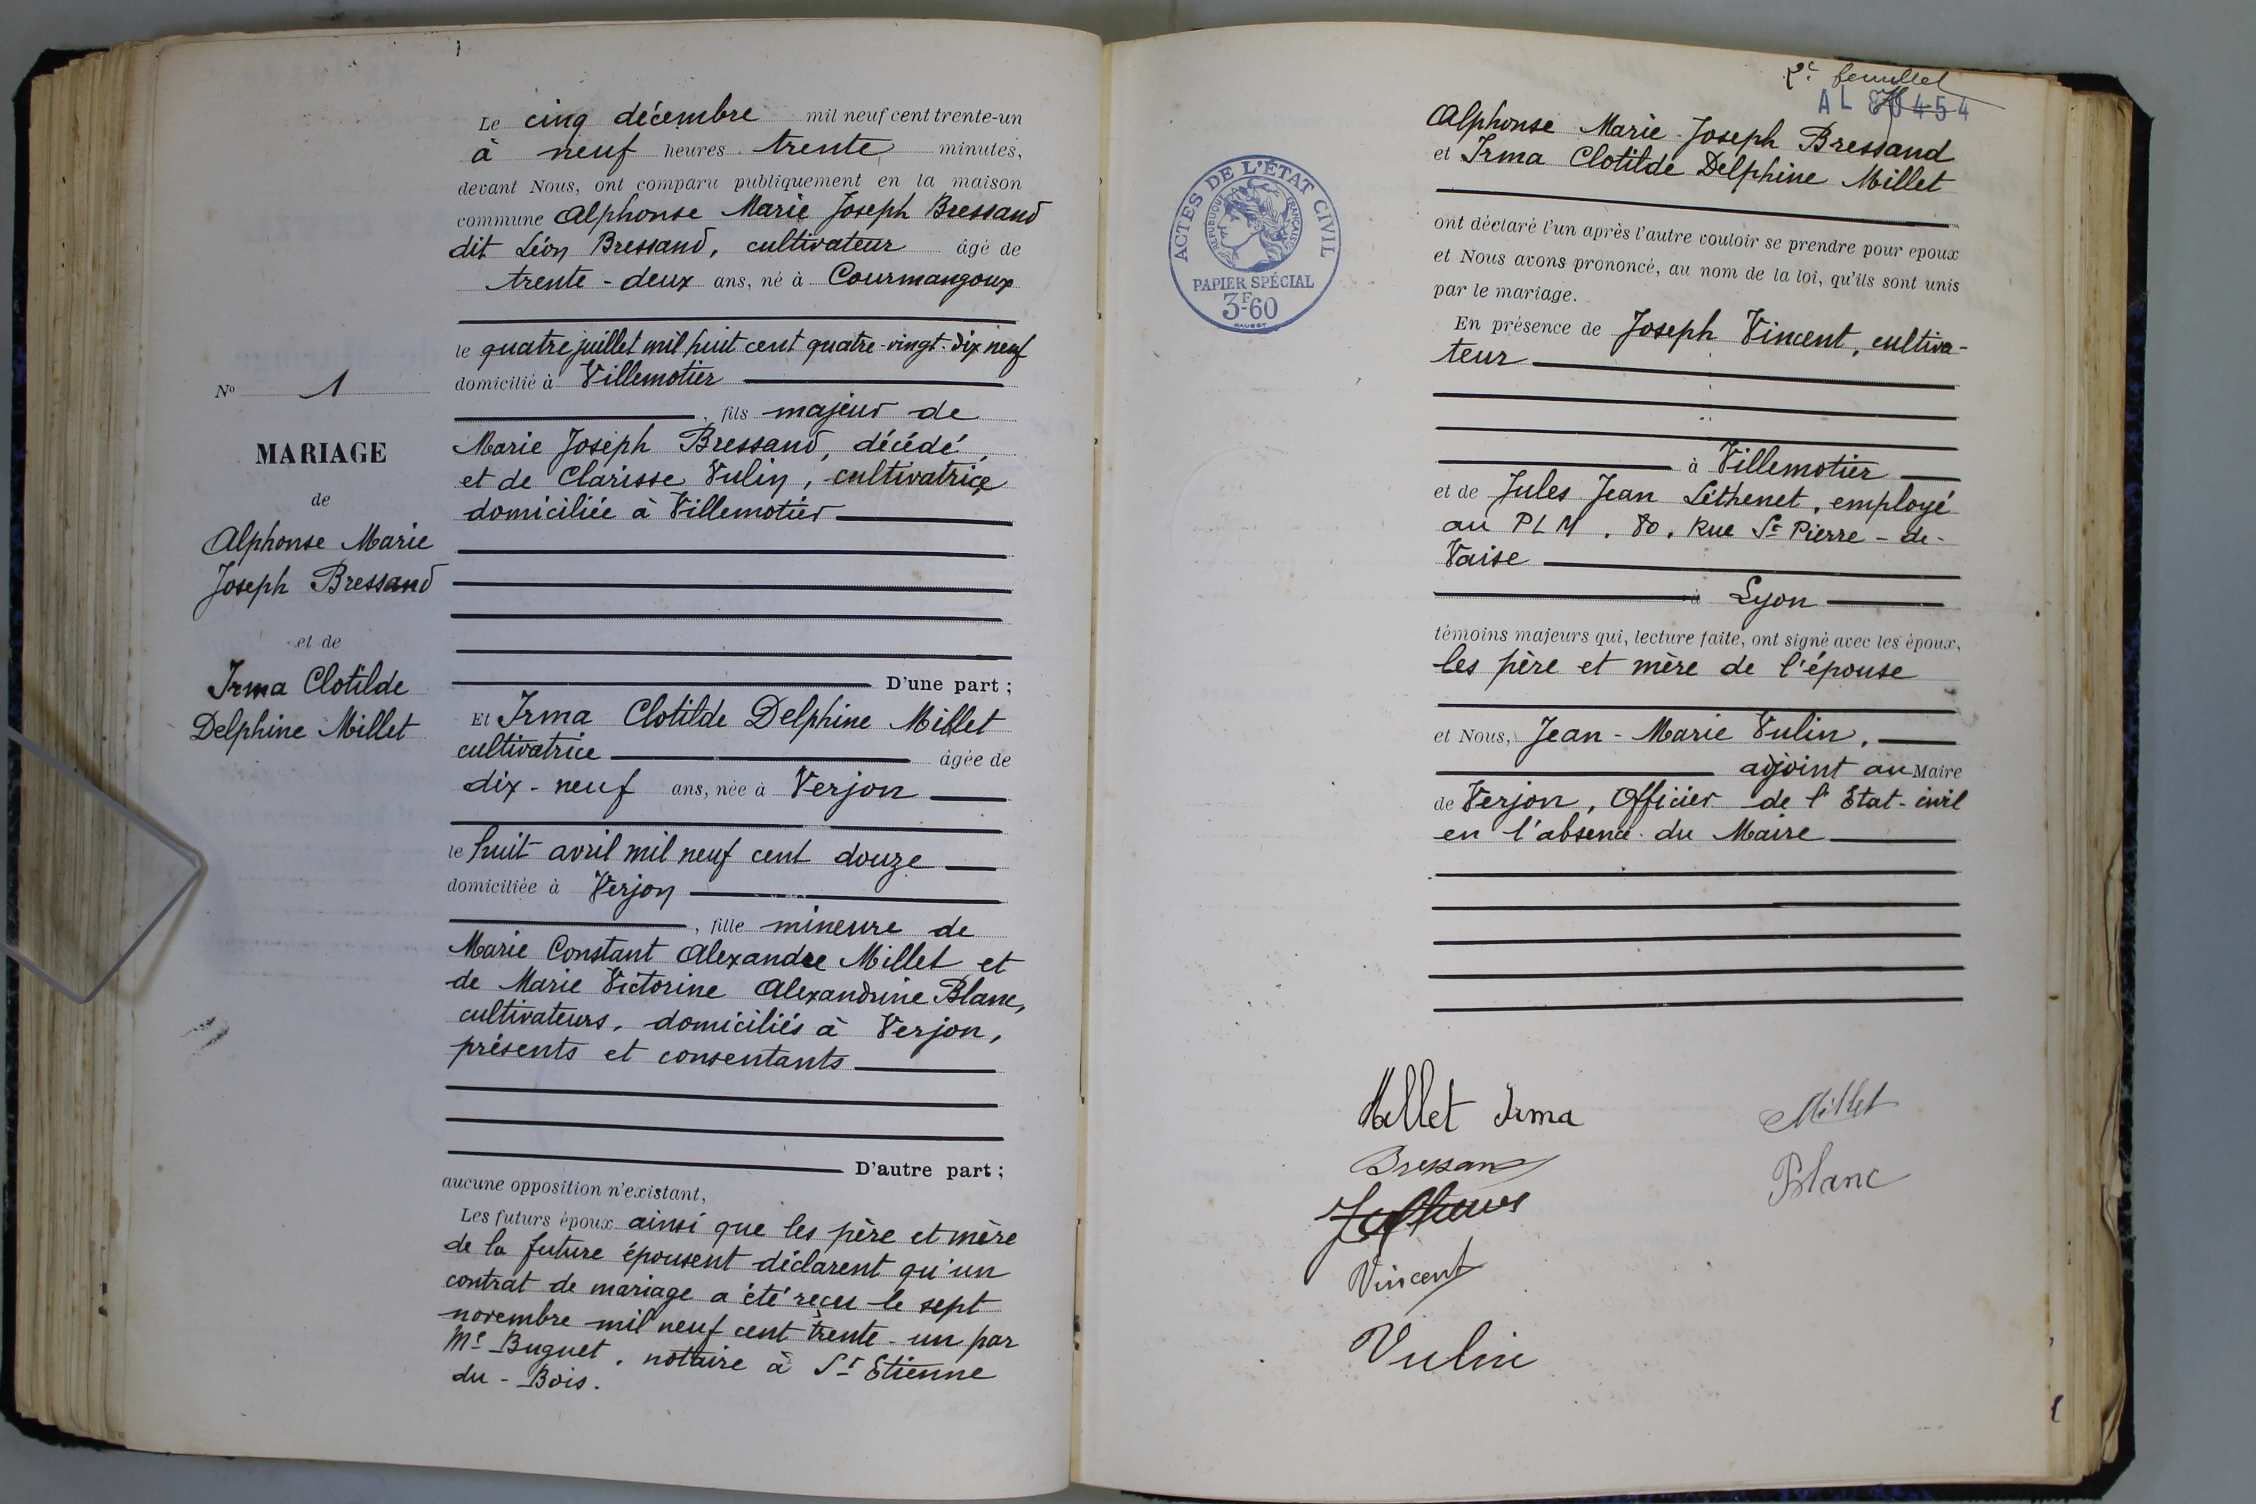 Le cinq décembre mil neuf cent trente-un
à neuf heures trente minutes,
devant Nous, ont comparu publiquement en la maison
commune Alphonse Marie Joseph Bressand
dit Léon Bressand, cultivateur âgé de
trente-deux ans, né à Courmangoux
le quatre juillet mil huit cent quatre-vingt-dix neuf
domicilié à Villemotier
, fils majeur de
Marie Joseph Bressand, décédé,
et de Clarisse Vulin, cultivatrice
domiciliée à Villemotier
D'une part ;
Et Irma Clotilde Delphine Millet
cultivatrice âgée de
dix-neuf ans, née à Verjon
le huit avril mil neuf cent douze
domiciliée à Verjon
, fille mineure de
Marie Constant Alexandre Millet et
de Marie Victorine Alexandrine Blanc,
cultivateurs, domiciliés à Verjon,
présents et consentants
D'autre part ;
aucune opposition n'existant,
Les futurs époux ainsi que les père et mère
de la future épousent déclarent qu'un
contrat de mariage a été reçu le sept
novembre mil neuf cent trente-un par
Me Buguet, notaire à St Etienne
du-Bois.
No 1
MARIAGE
de
Alphonse Marie
Joseph Bressand
et de
Irma Clotilde
Delphine Millet
2e feuillet
ACTES DE L'ÉTAT CIVIL
RÉPUBLIQUE FRANÇAISE
PAPIER SPÉCIAL
3F60
Alphonse Marie Joseph Bressand
et Irma Clotilde Delphine Millet
ont déclaré l'un après l'autre vouloir se prendre pour époux
et Nous avons prononcé, au nom de la loi, qu'ils sont unis
par le mariage.
En présence de Joseph Vincent, cultiva-
teur
à Villemotier
et de Jules Jean Léthenet, employé
au PLM, 80, Rue St Pierre-de-
Vaise
à Lyon
témoins majeurs qui, lecture faite, ont signé avec les époux,
les père et mère de l'épouse
et Nous, Jean-Marie Vulin,
adjoint au Maire
de Verjon, Officier de l'Etat-civil
en l'absence du Maire
Millet Irma
Millet
Bressand
Blanc
Vincent
Vulin